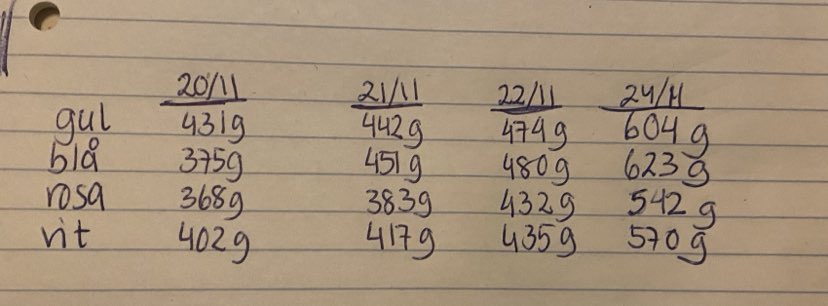 20/11 21/11 22/11 24/11
gul 431g 442g 474g 604g
blå 375g 451g 480g 623g
rosa 368g 383g 432g 542g
vit 402g 417g 435g 570g